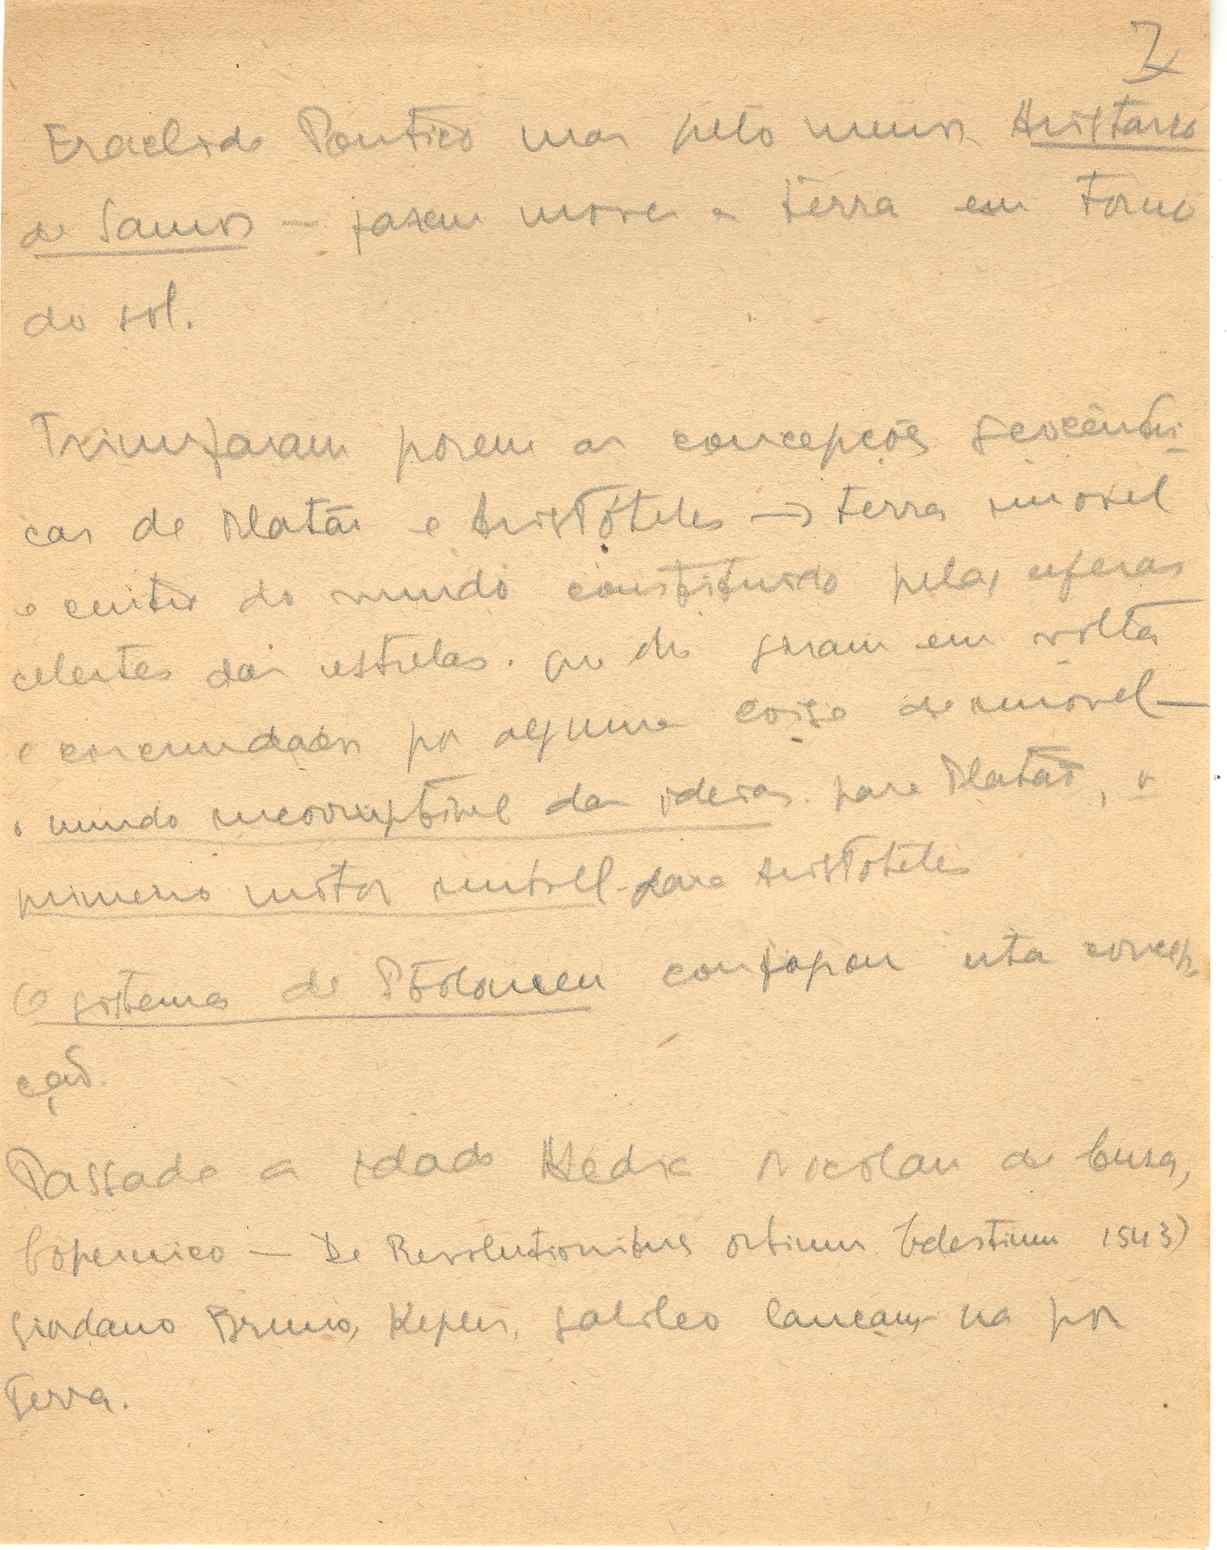 7
Eraclide Pontico mas pelo menos Aristarco
de Samos – fazem mover a terra em torno
do sol.
Triunfaram porem as concepções geocêntri-
cas de Platão e Aristóteles → terra imovel
e centro do mundo constituido pelas esferas
celestes das estrelas. que giram em volta
e por alguma coisa de imovel –
o mundo incorruptivel das ideias para Platão, o
primeiro motor imovel para Aristoteles
O sistema de Ptolomeu consagrou esta concep-
ção.
Passada a Idade Media Nicolau de Cusa,
Copernico – De Revolutionibus orbium Celestium 1543)
Giordano Bruno, Kepler, Galileo lançam-na por
terra.